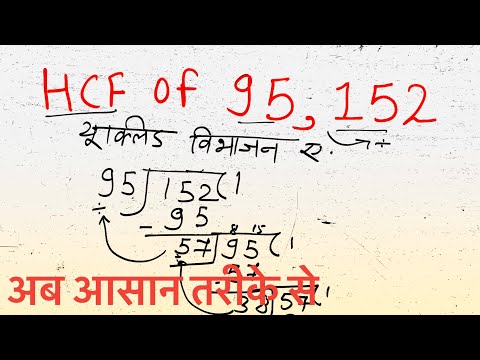 HCF of 95, 152
यूक्लिड विभाजन ए. ÷
95)152(1
÷ - 95
57)95(1
8 15
- 57
अब आसान तरीके से
38)57